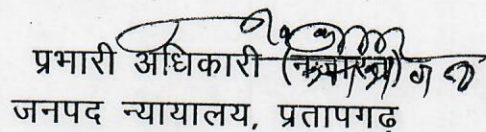 प्रभारी अधिकारी
जनपद न्यायालय, प्रतापगढ़